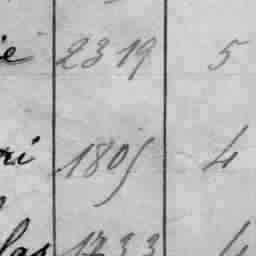 ie 2319 5
ri 1805 4
las 1733 4